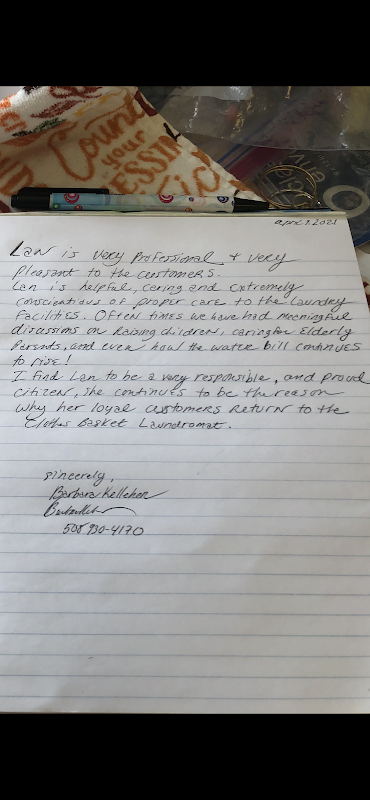 Count
your
ESSIN
april 1. 2021
Lan is very Professional & very
Pleasant to the customers.
Lan is helpful, caring and extremely
conscientious of proper care to the Laundry
Facilities. Often times we have had meaningful
discussions on Raising children, caring for Elderly
Parents, and even how the water bill continues
to rise!
I find Lan to be a very responsible, and proud
citizen, she continues to be the reason
why her loyal customers Return to the
Clothes Basket Laundromat.
sincerely,
Barbara Kelleher
508 930-4170